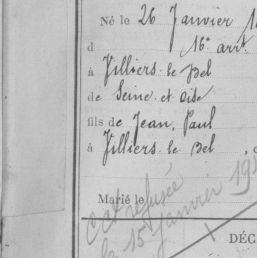 Né le 26 Janvier 1
d 16e arrt
à Villiers-le-Bel
de Seine et Oise
fils de Jean, Paul
à Villiers le Bel
Marié le
refusée
le 15 janvier 19
DÉC